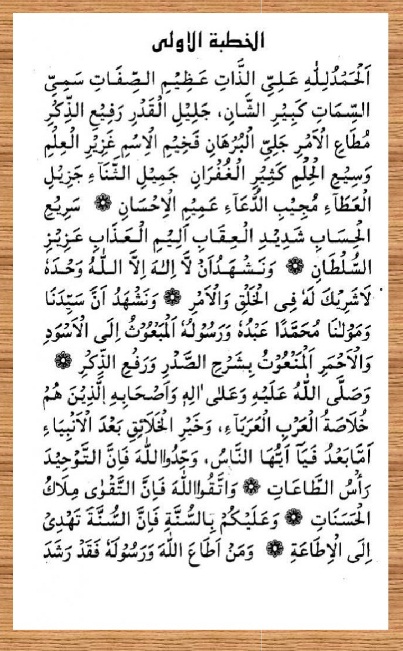 الخطبة الاولى
اَلْحَمْدُ لِلّٰهِ عَلِيِّ الذَّاتِ عَظِيْمِ الصِّفَاتِ سَمِيِّ
السِّمَاتِ كَبِيْرِ الشَّانِ، جَلِيْلِ الْقَدْرِ رَفِيْعِ الذِّكْرِ
مُطَاعِ الْاَمْرِ جَلِيِّ الْبُرْهَانِ فَخِيْمِ الْاِسْمِ غَزِيْرِ الْعِلْمِ
وَسِيْعِ الْحِلْمِ كَثِيْرِ الْغُفْرَانِ جَمِيْلِ الثَّنَآءِ جَزِيْلِ
الْعَطَآءِ مُجِيْبِ الدُّعَآءِ عَمِيْمِ الْاِحْسَانِ ۞ سَرِيْعِ
الْحِسَابِ شَدِيْدِ الْعِقَابِ اَلِيْمِ الْعَذَابِ عَزِيْزِ
السُّلْطَانِ ۞ وَنَشْهَدُ اَنْ لَّا اِلٰهَ اِلَّا اللّٰهُ وَحْدَهٗ
لَاشَرِيْكَ لَهٗ فِى الْخَلْقِ وَالْاَمْرِ ۞ وَنَشْهَدُ اَنَّ سَيِّدَنَا
وَمَوْلٰنَا مُحَمَّدًا عَبْدُهٗ وَرَسُوْلُهٗ الْمَبْعُوْثُ اِلَى الْاَسْوَدِ
وَالْاَحْمَرِ اَلْمَنْعُوْتُ بِشَرْحِ الصَّدْرِ وَرَفْعِ الذِّكْرِ ۞
وَصَلَّى اللّٰهُ عَلَيْهِ وَعَلٰى اٰلِهٖ وَاَصْحَابِهِ الَّذِيْنَ هُمْ
خُلَاصَةُ الْعَرَبِ الْعَرَبَآءِ، وَخَيْرُ الْخَلَائِقِ بَعْدَ الْاَنْبِيَآءِ
اَمَّابَعْدُ فَيَآ اَيُّهَا النَّاسُ، وَحِّدُوا اللّٰهَ فَاِنَّ التَّوْحِيْدَ
رَاْسُ الطَّاعَاتِ ۞ وَاتَّقُوا اللّٰهَ فَاِنَّ التَّقْوٰى مِلَاكُ
الْحَسَنَاتِ ۞ وَعَلَيْكُمْ بِالسُّنَّةِ فَاِنَّ السُّنَّةَ تَهْدِىْ
اِلَى الْاِطَاعَةِ ۞ وَمَنْ اَطَاعَ اللّٰهَ وَرَسُوْلَهٗ فَقَدْ رَشَدَ